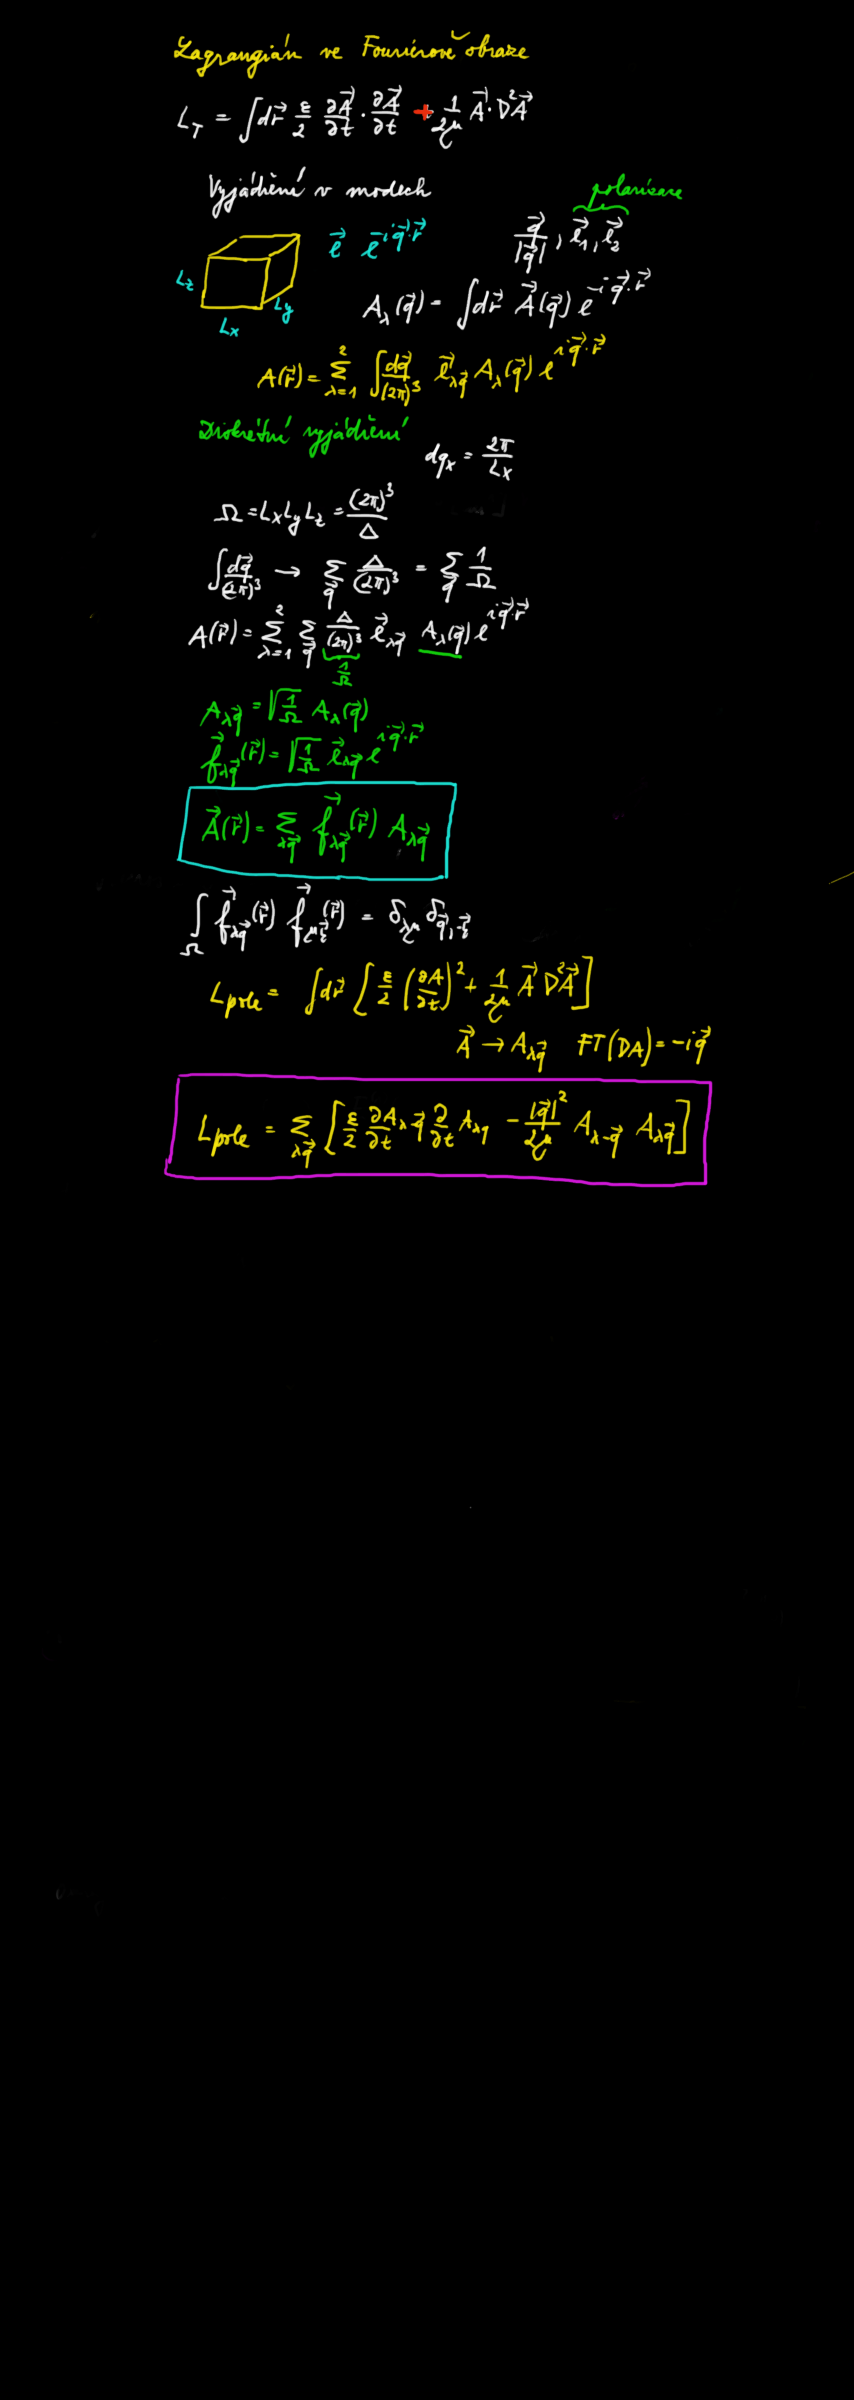 Lagrangián ve Fourierově obraze
L_T = ∫dr⃗ ε/2 ∂A⃗/∂t · ∂A⃗/∂t + 1/2μ A⃗·D²A⃗
Vyjádření v modech
polarizace
e⃗ e^{-iq⃗·r⃗}
q⃗/|q⃗|, e⃗₁, e⃗₂
Lz
Ly
Lx
A_λ(q⃗) = ∫dr⃗ A⃗(q⃗) e^{-iq⃗·r⃗}
A(r⃗) = Σ_{λ=1}^{2} ∫dq⃗/(2π)³ e⃗_{λq⃗} A_λ(q⃗) e^{iq⃗·r⃗}
Diskrétní vyjádření
dq_x = 2π/Lx
Ω = LxLyLz = (2π)³/Δ
∫dq⃗/(2π)³ → Σ_{q⃗} Δ/(2π)³ = Σ_{q⃗} 1/Ω
A(r⃗) = Σ_{λ=1}^{2} Σ_{q⃗} Δ/(2π)³ e⃗_{λq⃗} A_λ(q⃗) e^{iq⃗·r⃗}
1/Ω
A_{λq⃗} = √(1/Ω) A_λ(q⃗)
f⃗_{λq⃗}(r⃗) = √(1/Ω) e⃗_{λq⃗} e^{iq⃗·r⃗}
A⃗(r⃗) = Σ_{λq⃗} f⃗_{λq⃗}(r⃗) A_{λq⃗}
∫_Ω f⃗_{λq⃗}(r⃗) f⃗_{μξ⃗}(r⃗) = δ_{λμ} δ_{q⃗,-ξ⃗}
L_pole = ∫dr⃗ [ε/2 (∂A/∂t)² + 1/2μ A⃗ D²A⃗]
A⃗ → A_{λq⃗} FT(DA) = -iq⃗
L_pole = Σ_{λq⃗} [ε/2 ∂A_{λ-q⃗}/∂t ∂/∂t A_{λq} - |q⃗|²/2μ A_{λ-q⃗} A_{λq⃗}]